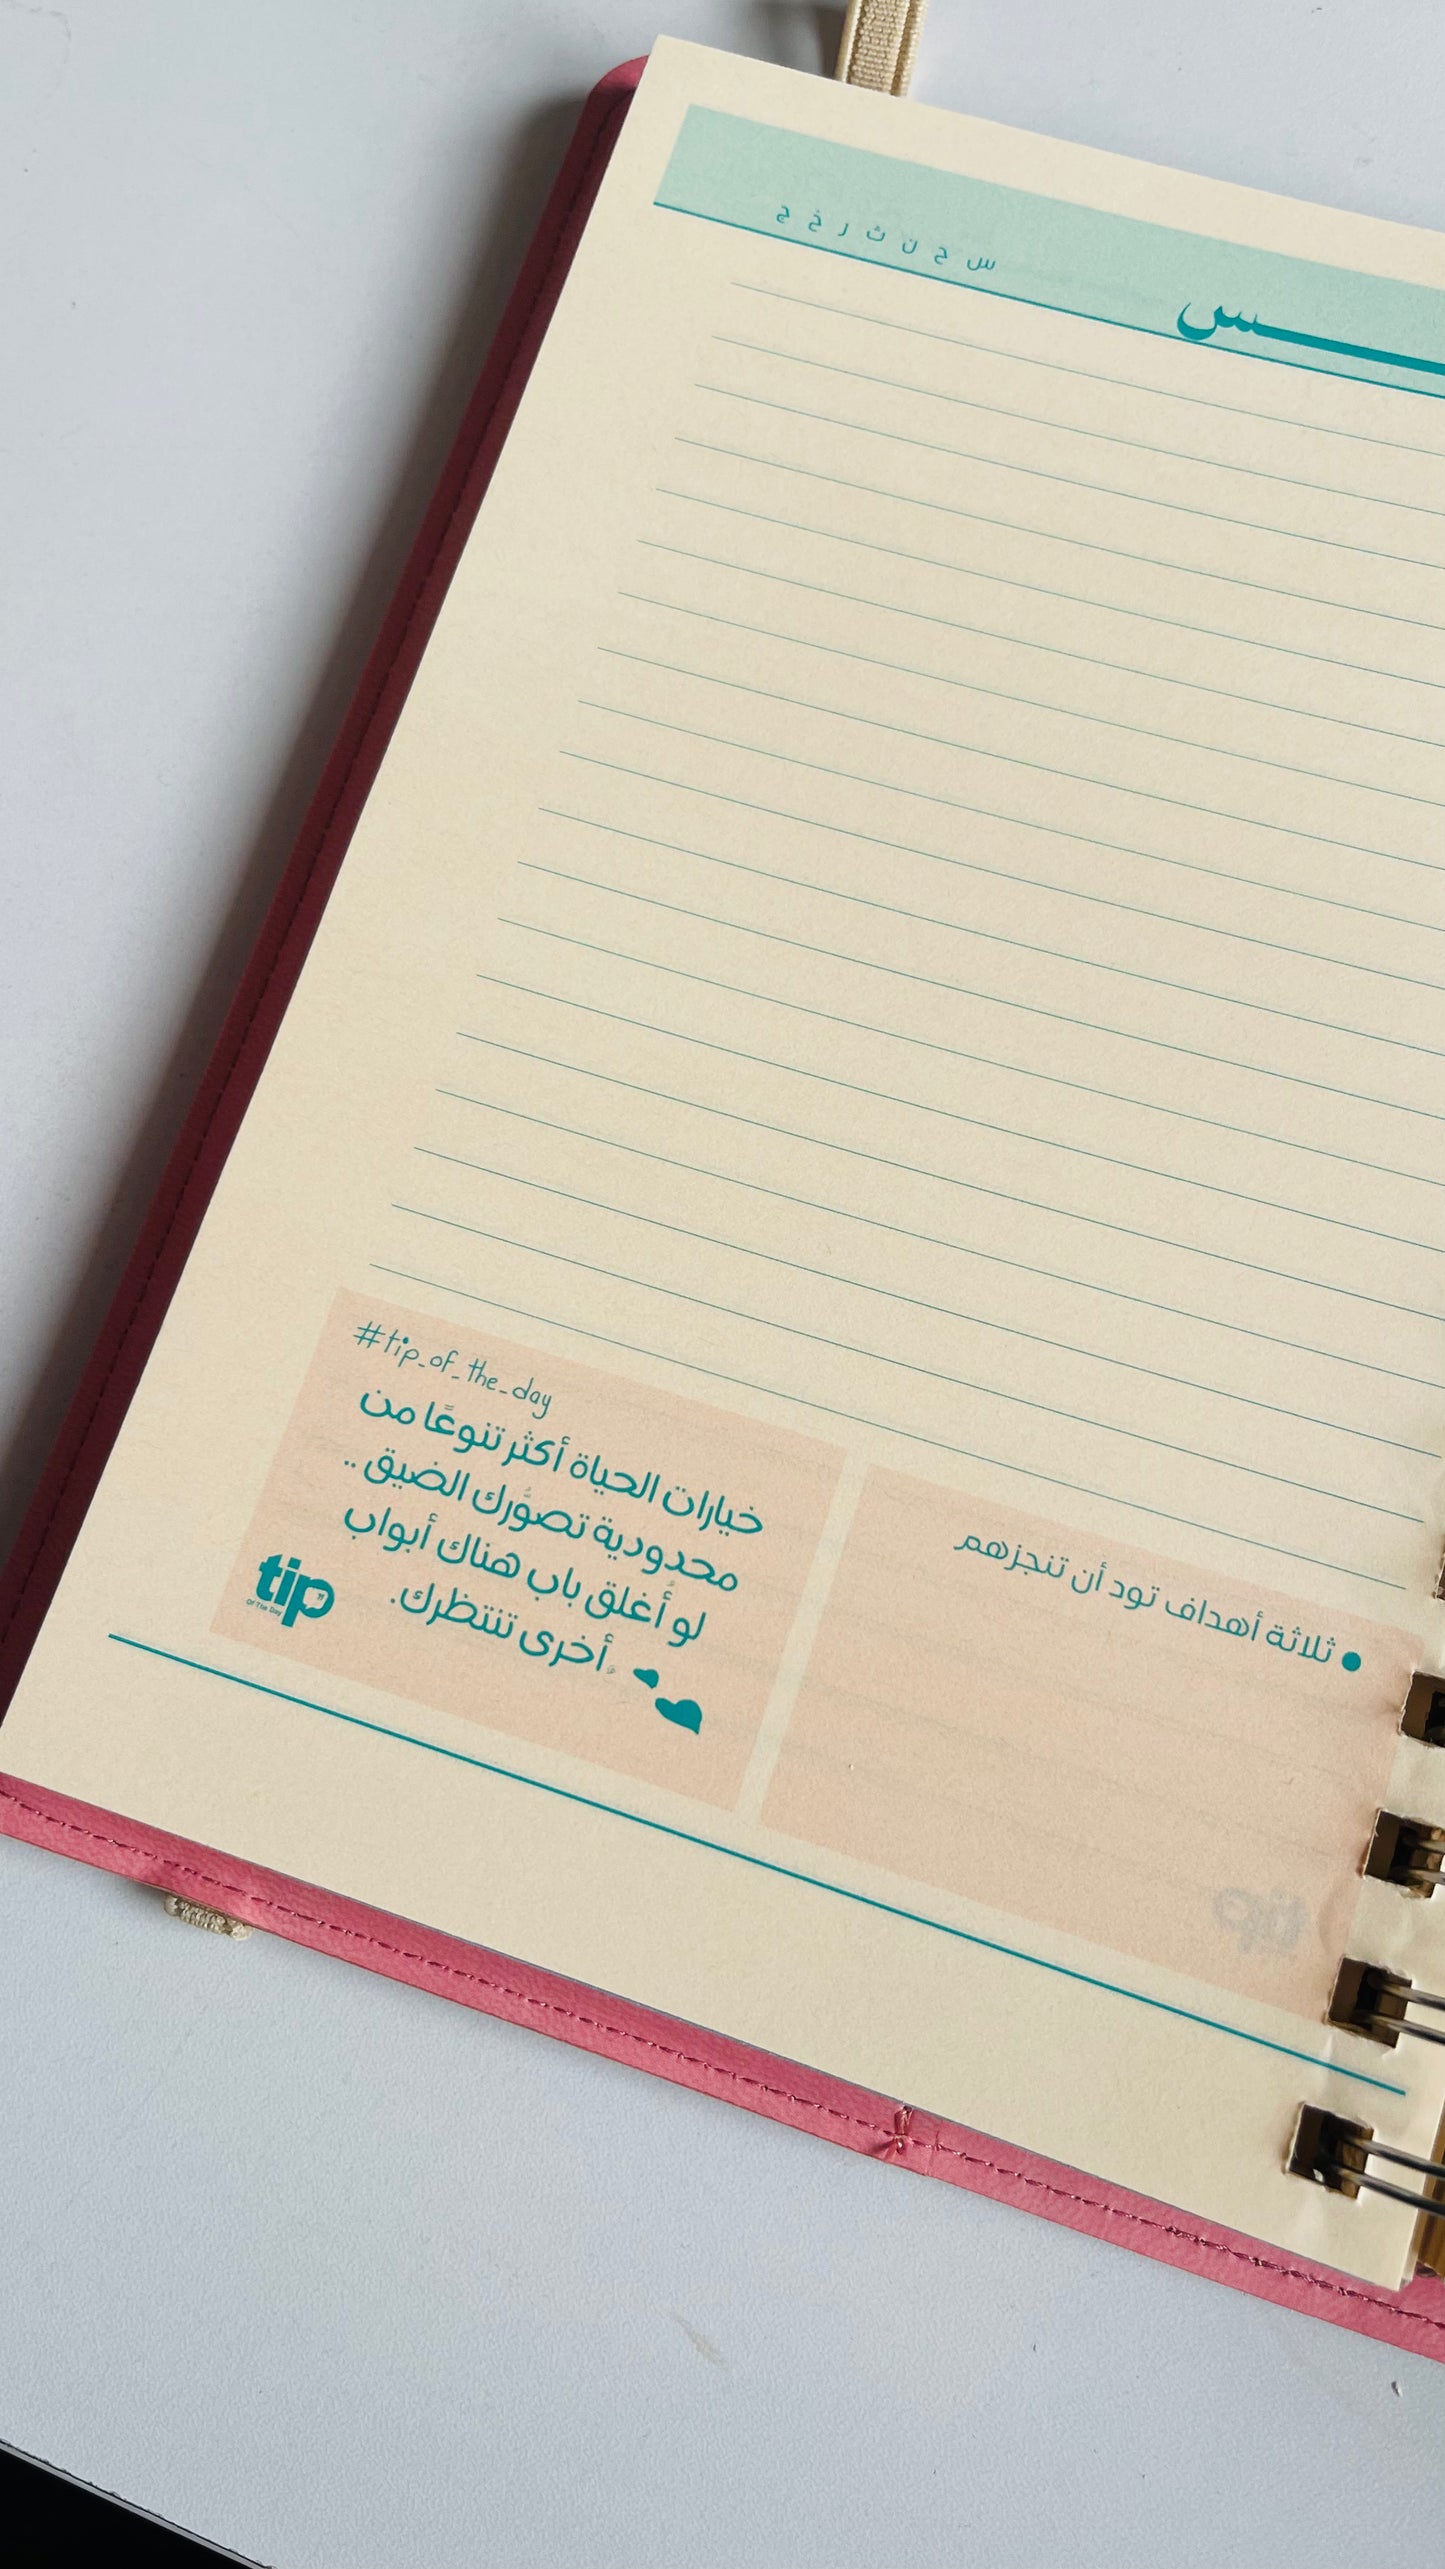 س ح ن ث ر خ ج
#tip_of_the_day
خيارات الحياة أكثر تنوعًا من
محدودية تصوّرك الضيق ..
لو أُغلق باب هناك أبواب
أخرى تنتظرك.
tip
Of The Day
• ثلاثة أهداف تود أن تنجزهم